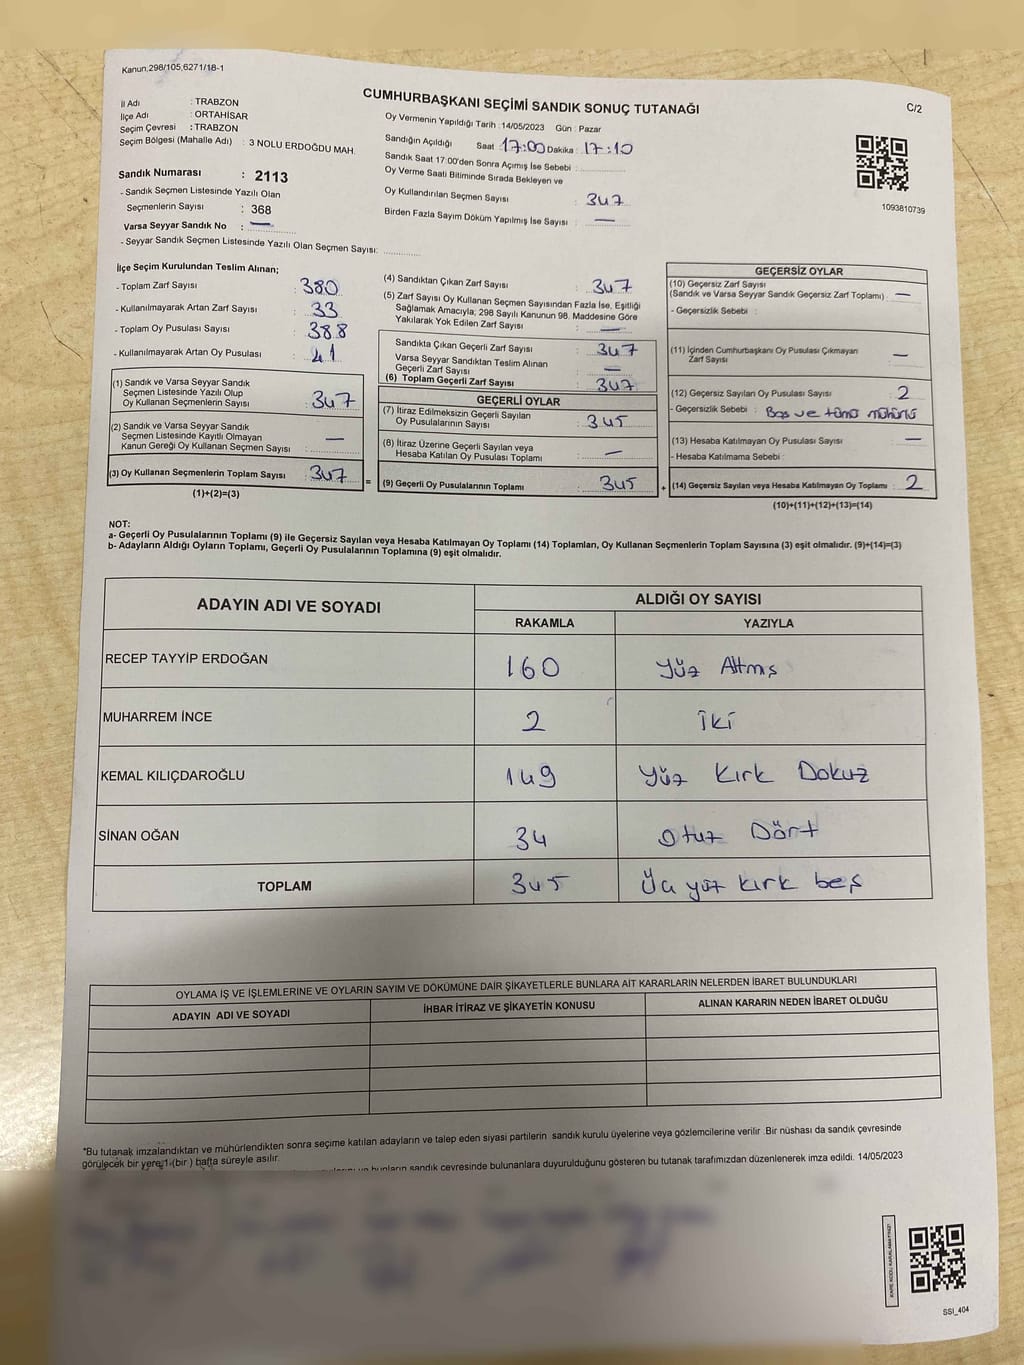 Kanun,298/105,6271/18-1
CUMHURBAŞKANI SEÇİMİ SANDIK SONUÇ TUTANAĞI
C/2
İl Adı : TRABZON
İlçe Adı : ORTAHİSAR
Seçim Çevresi : TRABZON
Seçim Bölgesi (Mahalle Adı) : 3 NOLU ERDOĞDU MAH.
Sandık Numarası : 2113
- Sandık Seçmen Listesinde Yazılı Olan
Seçmenlerin Sayısı : 368
Varsa Seyyar Sandık No : —
- Seyyar Sandık Seçmen Listesinde Yazılı Olan Seçmen Sayısı:
Oy Vermenin Yapıldığı Tarih : 14/05/2023 Gün : Pazar
Sandığın Açıldığı Saat : 17:00 Dakika : 17:10
Sandık Saat 17:00'den Sonra Açımış İse Sebebi :
Oy Verme Saati Bitiminde Sırada Bekleyen ve
Oy Kullandırılan Seçmen Sayısı : 347
Birden Fazla Sayım Döküm Yapılmış İse Sayısı : —
1093810739
İlçe Seçim Kurulundan Teslim Alınan;
- Toplam Zarf Sayısı : 380
- Kullanılmayarak Artan Zarf Sayısı : 33
- Toplam Oy Pusulası Sayısı : 388
- Kullanılmayarak Artan Oy Pusulası : 41
(1) Sandık ve Varsa Seyyar Sandık
Seçmen Listesinde Yazılı Olup
Oy Kullanan Seçmenlerin Sayısı : 347
(2) Sandık ve Varsa Seyyar Sandık
Seçmen Listesinde Kayıtlı Olmayan
Kanun Gereği Oy Kullanan Seçmen Sayısı : —
(3) Oy Kullanan Seçmenlerin Toplam Sayısı : 347
(1)+(2)=(3)
(4) Sandıktan Çıkan Zarf Sayısı : 347
(5) Zarf Sayısı Oy Kullanan Seçmen Sayısından Fazla İse, Eşitliği
Sağlamak Amacıyla, 298 Sayılı Kanunun 98. Maddesine Göre
Yakılarak Yok Edilen Zarf Sayısı : —
Sandıkta Çıkan Geçerli Zarf Sayısı : 347
Varsa Seyyar Sandıktan Teslim Alınan
Geçerli Zarf Sayısı : —
(6) Toplam Geçerli Zarf Sayısı : 347
GEÇERLİ OYLAR
(7) İtiraz Edilmeksizin Geçerli Sayılan
Oy Pusulalarının Sayısı : 345
(8) İtiraz Üzerine Geçerli Sayılan veya
Hesaba Katılan Oy Pusulası Toplamı : —
= (9) Geçerli Oy Pusulalarının Toplamı : 345
GEÇERSİZ OYLAR
(10) Geçersiz Zarf Sayısı
(Sandık ve Varsa Seyyar Sandık Geçersiz Zarf Toplamı) : —
- Geçersizlik Sebebi :
(11) İçinden Cumhurbaşkanı Oy Pusulası Çıkmayan
Zarf Sayısı : —
(12) Geçersiz Sayılan Oy Pusulası Sayısı : 2
- Geçersizlik Sebebi : Boş ve tümü mühürlü
(13) Hesaba Katılmayan Oy Pusulası Sayısı : —
- Hesaba Katılmama Sebebi :
+ (14) Geçersiz Sayılan veya Hesaba Katılmayan Oy Toplamı : 2
(10)+(11)+(12)+(13)=(14)
NOT:
a- Geçerli Oy Pusulalarının Toplamı (9) ile Geçersiz Sayılan veya Hesaba Katılmayan Oy Toplamı (14) Toplamları, Oy Kullanan Seçmenlerin Toplam Sayısına (3) eşit olmalıdır. (9)+(14)=(3)
b- Adayların Aldığı Oyların Toplamı, Geçerli Oy Pusulalarının Toplamına (9) eşit olmalıdır.
ADAYIN ADI VE SOYADI ALDIĞI OY SAYISI
RAKAMLA YAZIYLA
RECEP TAYYİP ERDOĞAN 160 Yüz Altmş
MUHARREM İNCE 2 İki
KEMAL KILIÇDAROĞLU 149 Yüz Kırk Dokuz
SİNAN OĞAN 34 Otuz Dört
TOPLAM 345 Üç yüz kırk beş
OYLAMA İŞ VE İŞLEMLERİNE VE OYLARIN SAYIM VE DÖKÜMÜNE DAİR ŞİKAYETLERLE BUNLARA AİT KARARLARIN NELERDEN İBARET BULUNDUKLARI
ADAYIN ADI VE SOYADI İHBAR İTİRAZ VE ŞİKAYETİN KONUSU ALINAN KARARIN NEDEN İBARET OLDUĞU
*Bu tutanak imzalandıktan ve mühürlendikten sonra seçime katılan adayların ve talep eden siyasi partilerin sandık kurulu üyelerine veya gözlemcilerine verilir .Bir nüshası da sandık çevresinde
görülecek bir yere 1 (bir ) hafta süreyle asılır.
bunların sandık çevresinde bulunanlara duyurulduğunu gösteren bu tutanak tarafımızdan düzenlenerek imza edildi. 14/05/2023
SSI_404